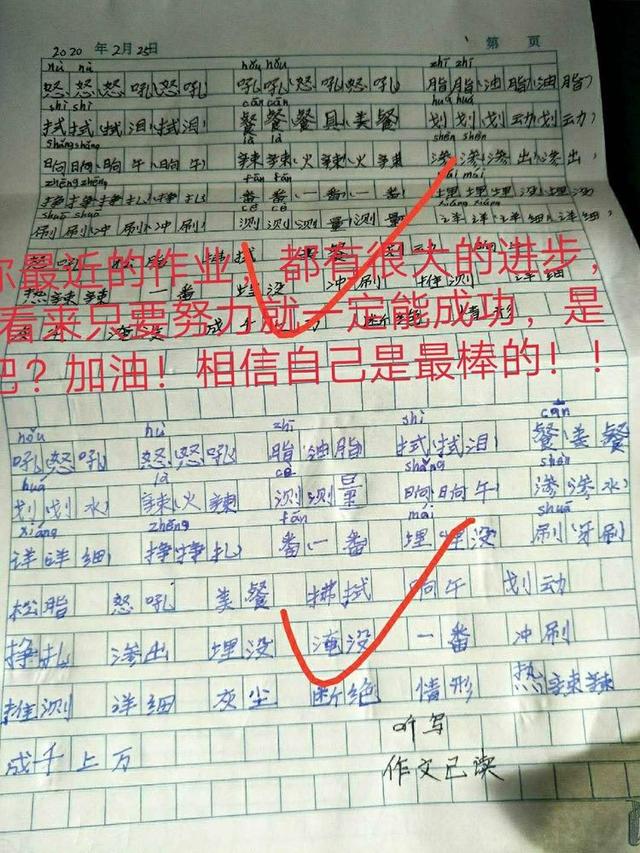 2020 年 2月 25日 第 页
nù nù hǒu hǒu zhī zhī
怒怒怒吼怒吼 吼吼怒吼怒吼 脂脂油脂油脂
shì shì cān cān huá huá
拭拭拭泪拭泪 餐餐餐具美餐 划划划动划动
shǎng shǎng là là shèn shèn
晌晌晌午晌午 辣辣火辣火辣 渗渗渗出渗出
zhēng zhēng fān fān mái mái
挣挣挣扎挣扎 番番一番一番 埋埋埋没埋没
shuā shuā cè cè xiáng xiáng
刷刷冲刷冲刷 测测测量测量 详详详细详细
你最近的作业，都有很大的进步，
看来只要努力就一定能成功，是
吧？加油！相信自己是最棒的！！
热辣辣 一番 埋没 冲刷 推测 详细
hǒu nù zhī shì cān
吼怒吼 怒怒吼 脂油脂 拭拭泪 餐美餐
huá là cè shǎng shèn
划划水 辣火辣 测测量 晌晌午 渗渗水
xiáng zhēng fān mái shuā
详详细 挣挣扎 番一番 埋埋没 刷牙刷
松脂 怒吼 美餐 拂拭 晌午 划动
挣扎 渗出 埋没 淹没 一番 冲刷
推测 详细 灰尘 断绝 情形 热辣辣
成千上万
听写
作文已读